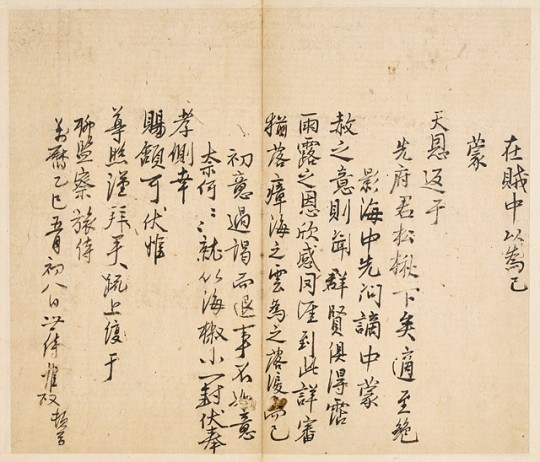 在賊中以為已
蒙
天恩返于
先府君松楸下矣適至絶
影海中先問謫中蒙
赦之意則與群賢俱得霑
雨露之恩欣感同涯到此詳審
猶落瘴海之雲為之落淚而已
初意過謁而退事不
奈何〻就以海椒小一封伏奉
孝側幸
賜領可伏惟
尊照謹拜手疏上復于
監察旅侍
萬曆乙巳五月初八日